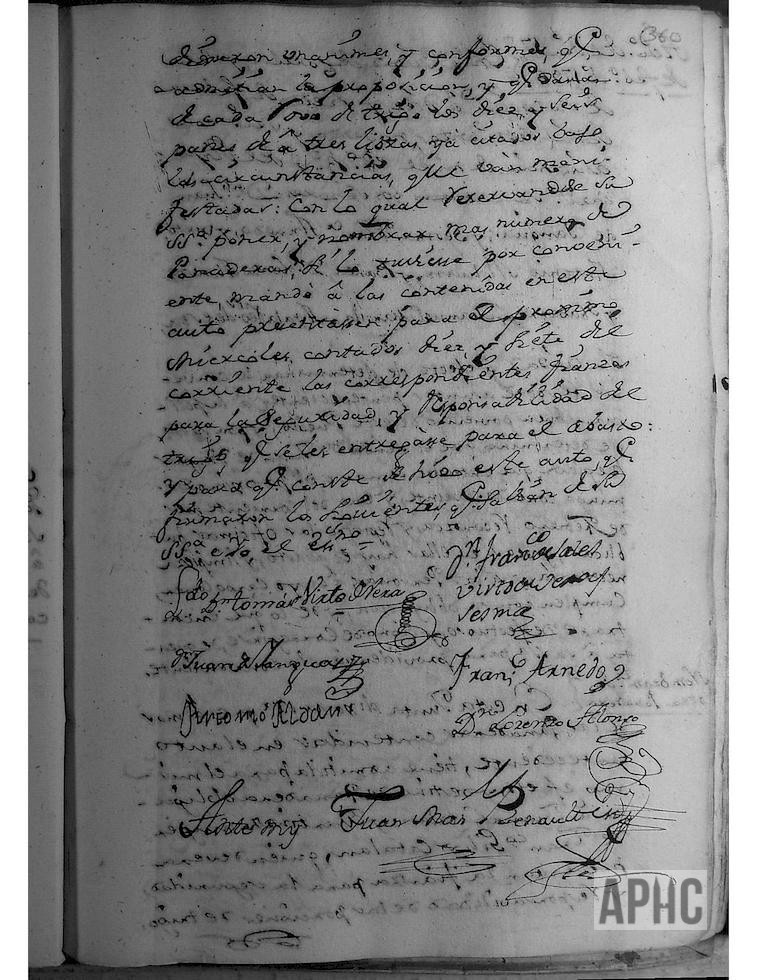 360
dixeron unanimes, y conformes, qᵉ
admitian la proposicion, y qᵉ darian
de cada rovo de trigo los diez, y seis
panes de â tres libras ya citados vajo
las circunstancias, que van mani-
festadas: Con lo qual reservandose su
Sª poner, y nombrar mas numero de
Panaderas, si lo tuviesse por conveni-
ente, mandó â las contenidas en este
auto presentassen para el proximo
Miercoles contados diez, y siete del
corriente las correspondientes fianzas
para la seguridad, y responsabilidad del
trigo qᵉ se les entregasse para el abasto:
Y para qᵉ conste se hizo este auto, qᵉ
firmaron los siguientes qᵉ saben de su
SSª e yo el essno
Dⁿ Franco
Ldo Dⁿ Tomás Virto Vera
Sesma
Dⁿ Juan
Franº Arnedo
Antonio Aldau
Dⁿ Lorenzo Alonso
Ante mi Juan Mar Renault
APHC